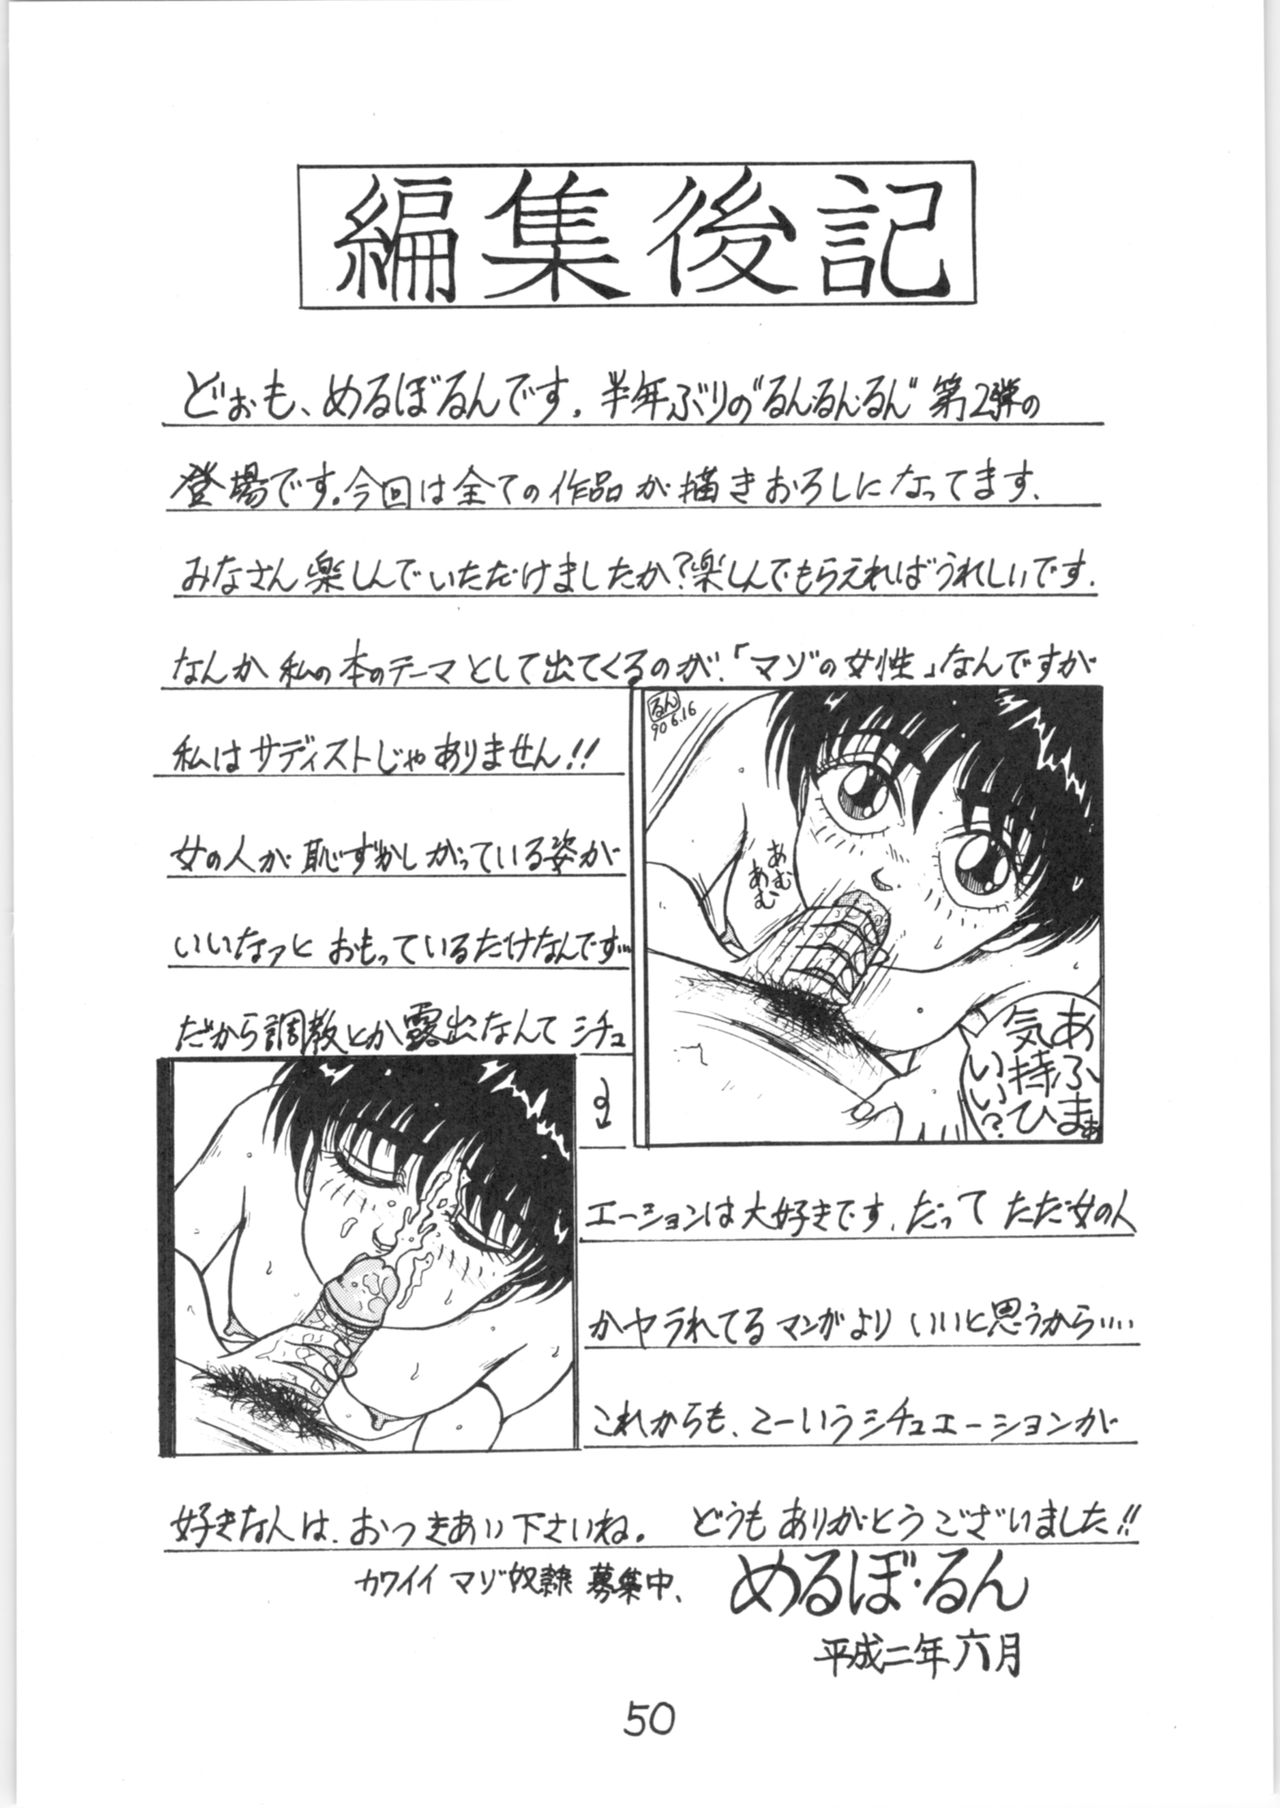 編集後記
どぉも、めるぼるんです。半年ぶりの"るん・るん・るん"第2弾の
登場です。今回は全ての作品が描きおろしになってます、
みなさん楽しんでいただけましたか?楽しんでもらえればうれしいです.
なんか私の本のテーマとして出てくるのが、「マゾの女性」なんですが
私はサディストじゃありません!!
女の人が恥ずかしがっている姿が
いいなァと おもっているだけなんです…
だから調教とか露出なんて シチュ
エーションは大好きです、だって ただ女の人
がヤラれてるマンガより いいと思うから‥‥
これからも、こーいうシチュエーションが
好きな人は、おつきあい下さいね。 どうもありがとうございました!!
カワイイ マゾ奴隷 募集中、
めるぼ・るん
平成二年六月
るん
'90 6.16
あむ
あむ
あふまぁ
気持ひ
いい?
50